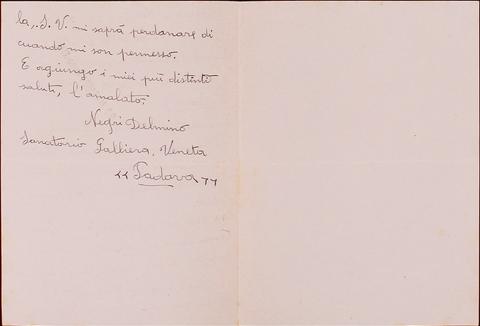 la, S. V. mi saprà perdonare di
cuandò mi son permesso.
E agiungo i miei più distinti
saluti, l'amalato,
Negri Delmino
Sanatorio Galliera, Veneta
"Padova"